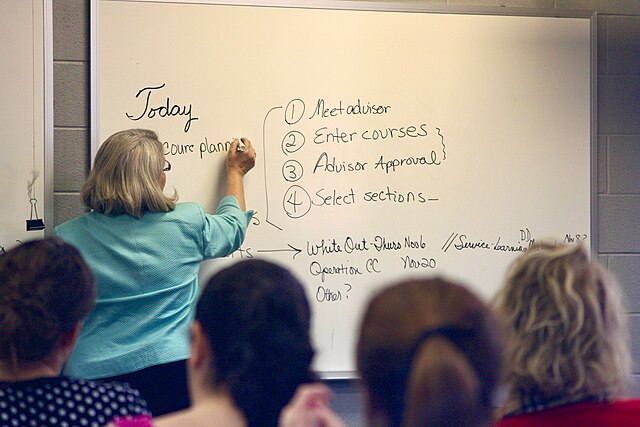 Today
Coure plann
① Meet advisor
② Enter courses
③ Advisor Approval
④ Select sections
White Out - Thurs Nov 6 // Service-Learning
Operation CC Nov 20
Other?